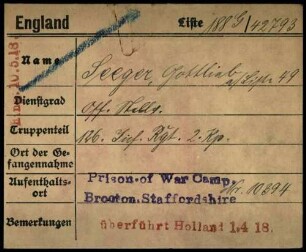 England Liste 188 G/42793
ein. 10.5.18.
Name Seeger, Gottlieb
a/Liste 49
Dienstgrad Off. Stellv.
Truppenteil 126. Inf. Rgt. 2. Kp.
Ort der Ge-
fangennahme
Aufenthalts-
ort
Prison of War Camp, Nr. 10394
Brocton, Staffordshire
Bemerkungen überführt Holland 1.4 18.